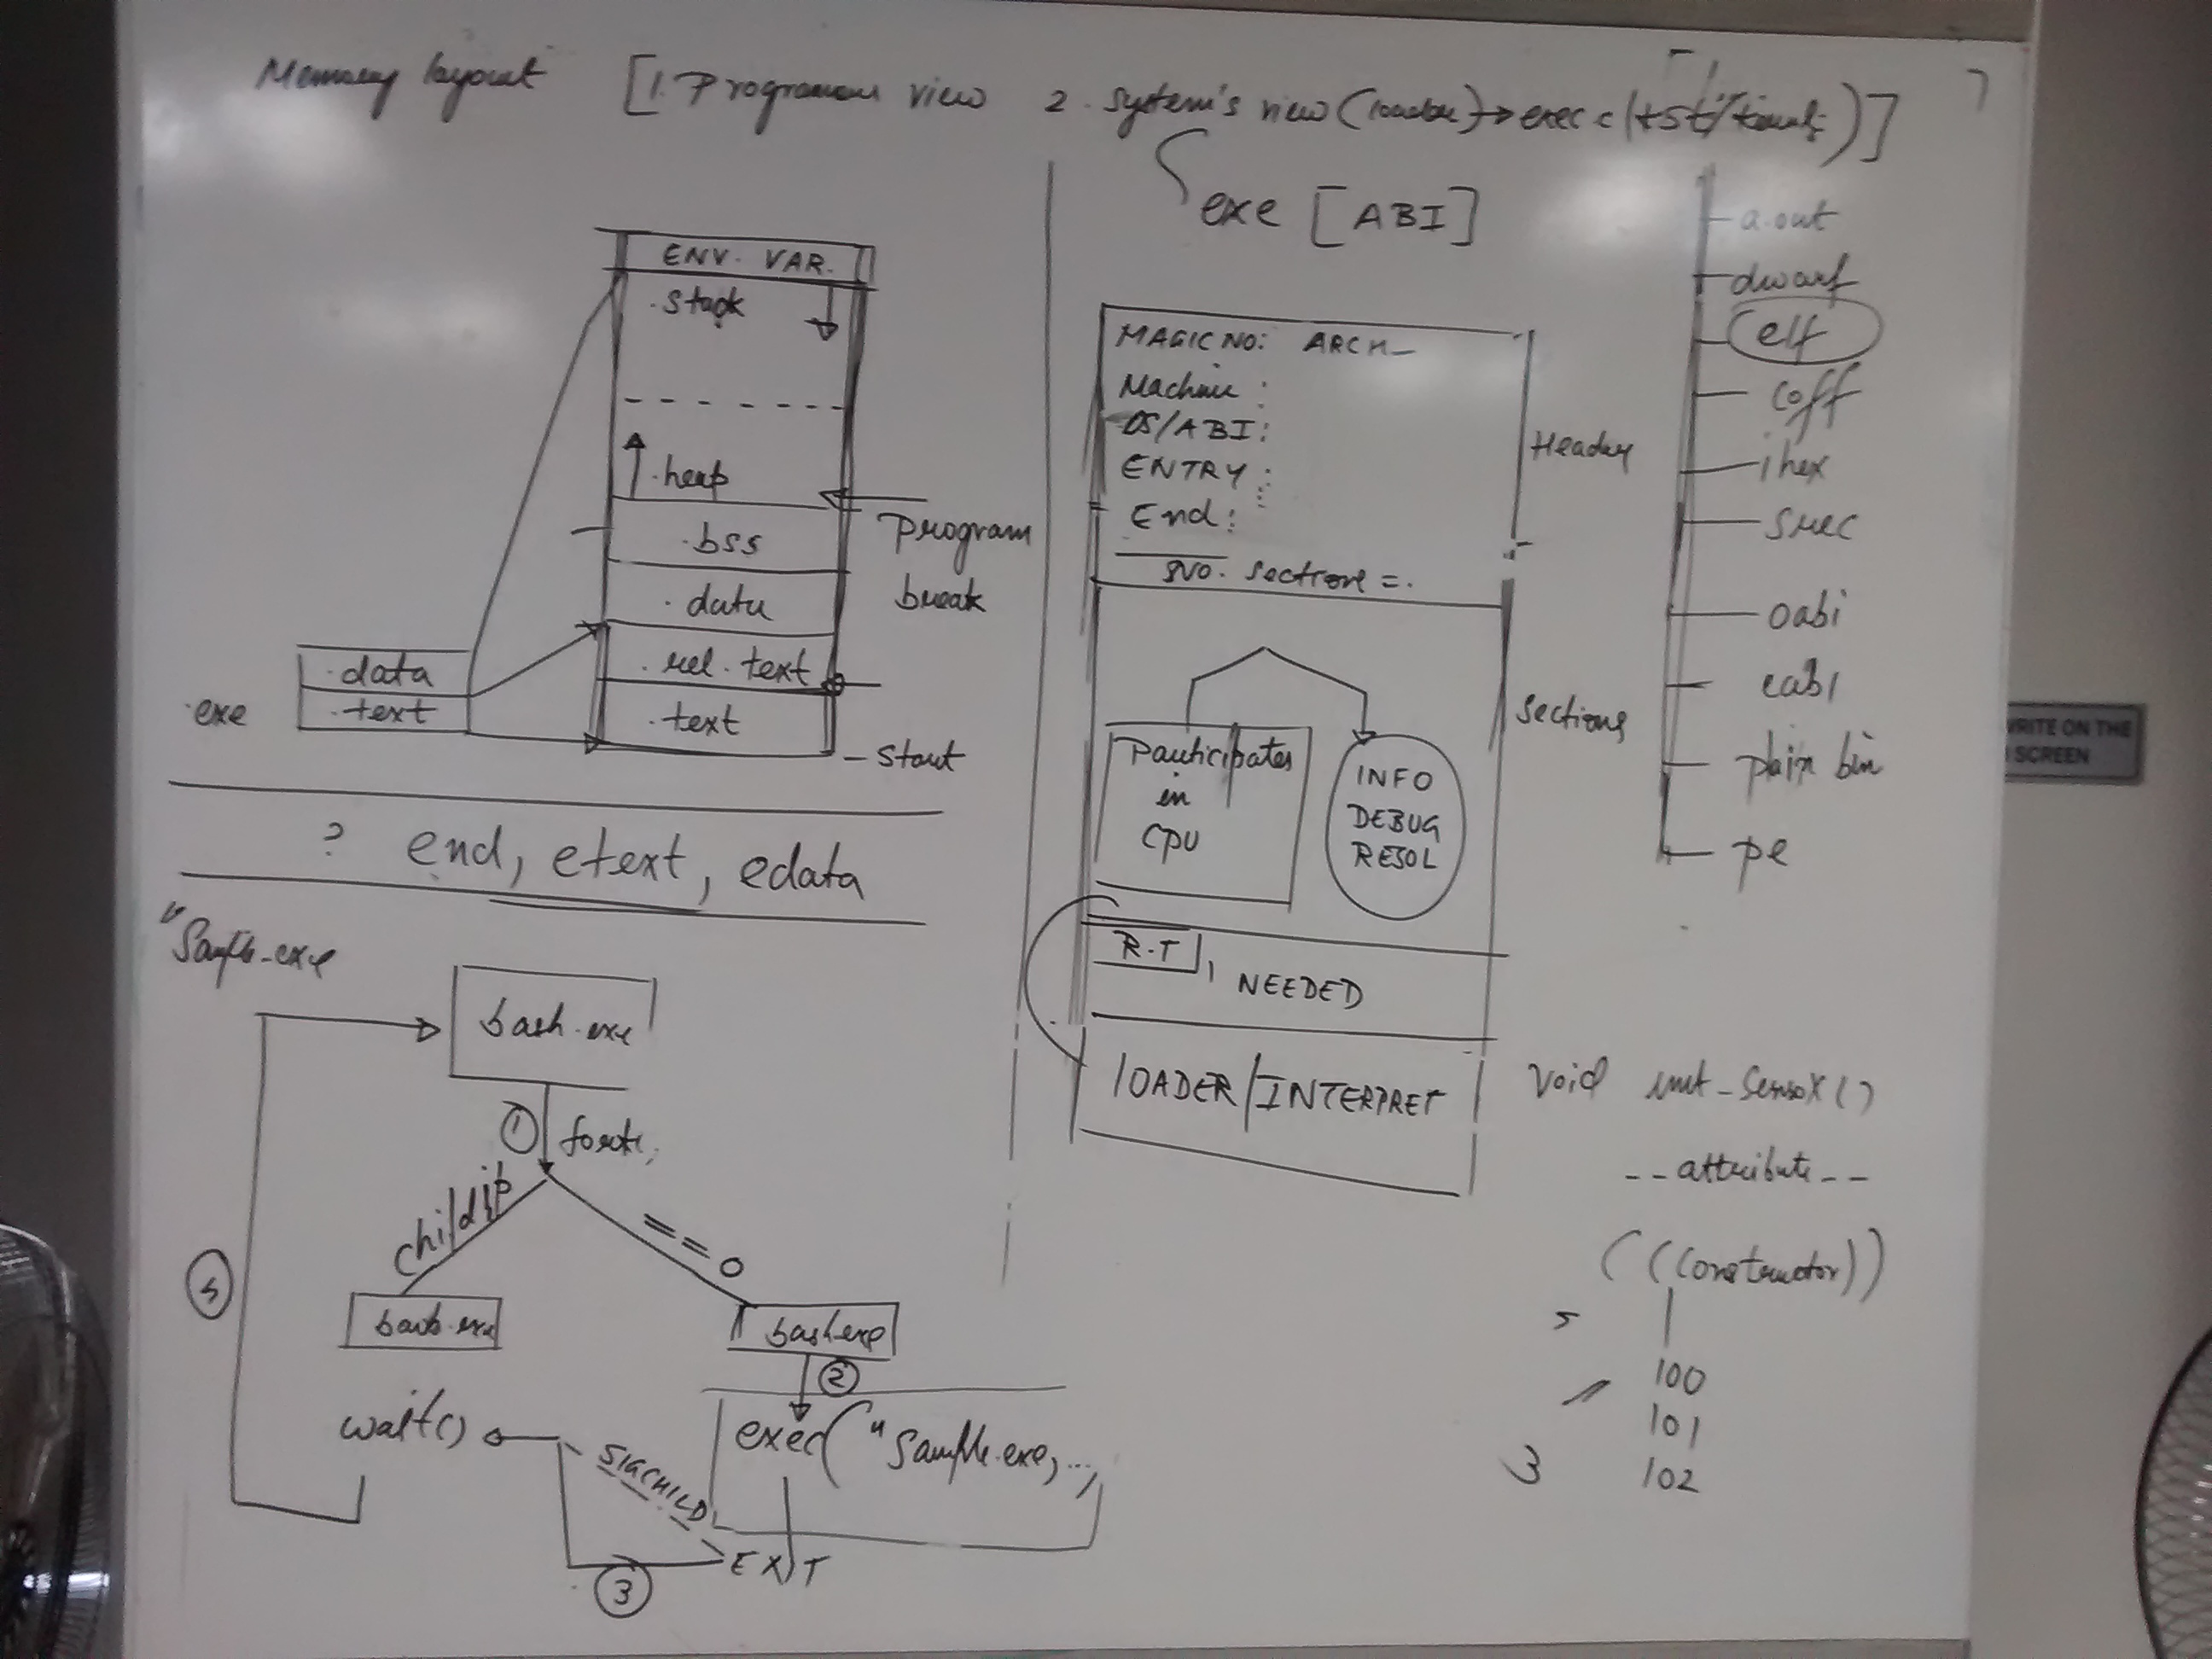 Memory layout [1. Programmer view 2. System's view (loader) → exec
exe [ABI]
ENV. VAR.
.stack
.heap
.bss
.data
.rel.text
.text
Program
break
_start
.data
.text
.exe
? end, etext, edata
"Sample.exe
bash.exe
① fork
childip
== 0
bash.exe
bash.exe
②
wait()
exec("Sample.exe, ...,
SIGCHILD
EXIT
③
MAGIC NO: ARCH_
Machine :
OS/ABI:
ENTRY :
End :
NO. section = .
Header
Participates
in
CPU
INFO
DEBUG
RESOL
Sections
R.T, NEEDED
LOADER/INTERPRET
a.out
dwarf
elf
coff
ihex
srec
oabi
eabi
plain bin
pe
void init_sensox()
__attribute__
((constructor))
100
101
3 102
WRITE ON THE
SCREEN